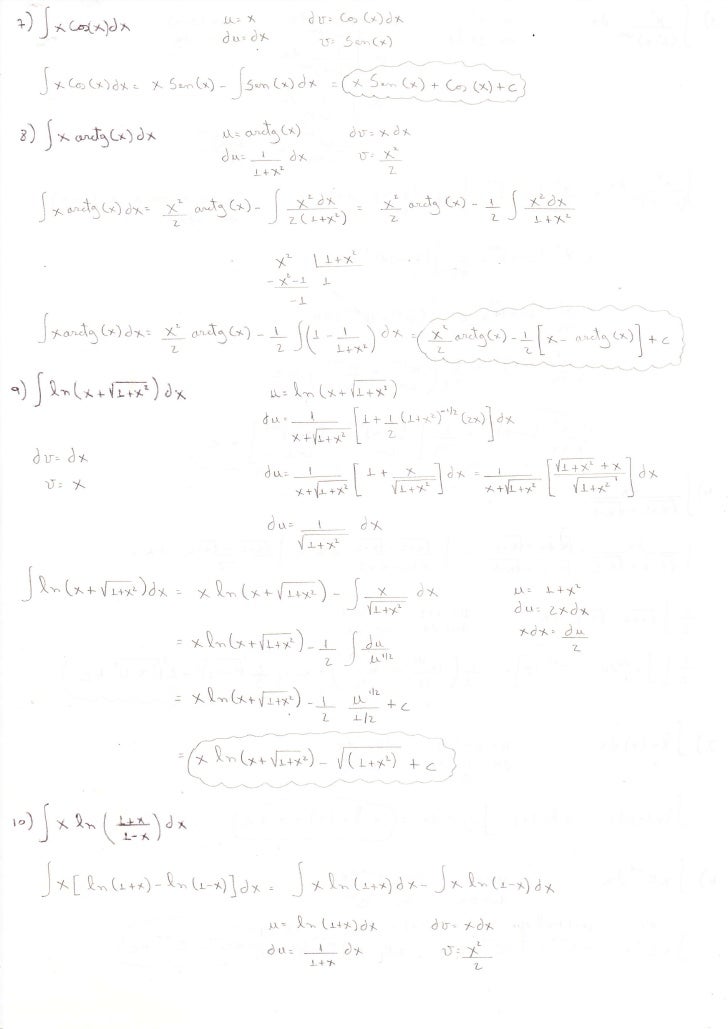 7) ∫ x Cos(x) dx    u = x    dv = Cos(x) dx
du = dx    v = Sen(x)
∫ x Cos(x) dx = x Sen(x) - ∫ Sen(x) dx = x Sen(x) + Cos(x) + c
8) ∫ x arctg(x) dx    u = arctg(x)    dv = x dx
du = 1/(1+x²) dx    v = x²/2
∫ x arctg(x) dx = x²/2 arctg(x) - ∫ x² dx/(2(1+x²)) = x²/2 arctg(x) - 1/2 ∫ x² dx/(1+x²)
x² | 1+x²
-x²-1    1
-1
∫ x arctg(x) dx = x²/2 arctg(x) - 1/2 ∫ (1 - 1/(1+x²)) dx = x²/2 arctg(x) - 1/2 [x - arctg(x)] + c
9) ∫ ln(x+√(1+x²)) dx    u = ln(x+√(1+x²))
du = 1/(x+√(1+x²)) [1 + 1/2 (1+x²)^(-1/2) (2x)] dx
dv = dx
v = x    du = 1/(x+√(1+x²)) [1 + x/√(1+x²)] dx = 1/(x+√(1+x²)) [(√(1+x²) + x)/√(1+x²)] dx
du = 1/√(1+x²) dx
∫ ln(x+√(1+x²)) dx = x ln(x+√(1+x²)) - ∫ x/√(1+x²) dx    u = 1+x²
du = 2x dx
= x ln(x+√(1+x²)) - 1/2 ∫ du/u^(1/2)    x dx = du/2
= x ln(x+√(1+x²)) - 1/2 u^(1/2)/(1/2) + c
= x ln(x+√(1+x²)) - √(1+x²) + c
10) ∫ x ln((1+x)/(1-x)) dx
∫ x [ln(1+x) - ln(1-x)] dx = ∫ x ln(1+x) dx - ∫ x ln(1-x) dx
u = ln(1+x) dx    dv = x dx
du = 1/(1+x) dx    v = x²/2